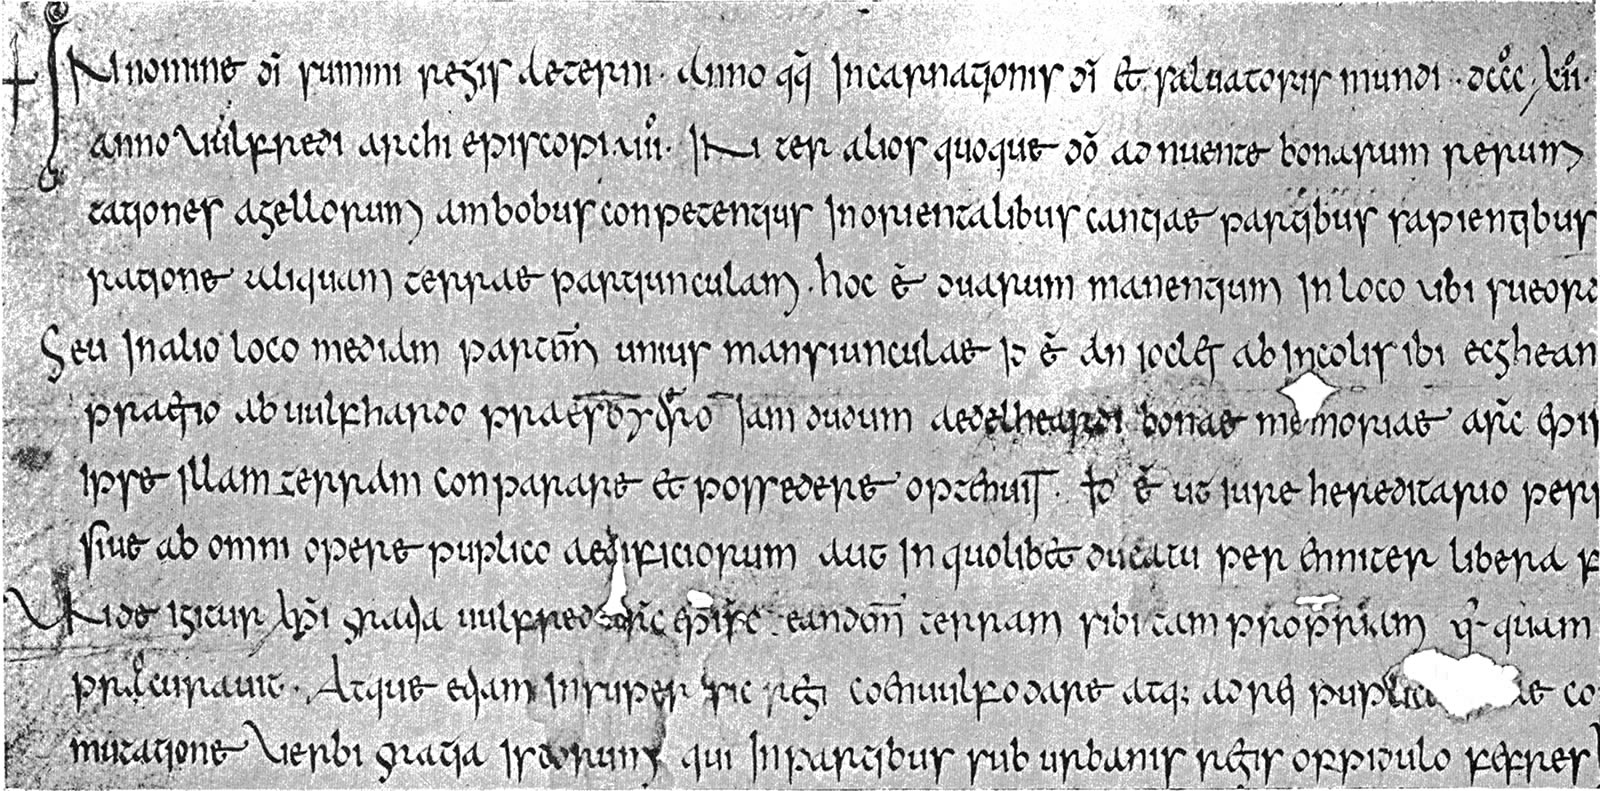 † IN nomine dī summi regis aeterni · Anno q̄q̄ Incarnationis dī et saluatoris mundi · dcccº, xiiº ·
anno uulfredi archi episcopi · uiiiº · IN ter alios quoque dō ad nuente bonarum rerum
tationes agellorum ambobus conpetentius In orientalibus cantiae partibus sapientibus
ratione aliquam terrae partiunculam · hoc ē duarum manentium In loco ubi sueord
Seu In alio loco mediam partem unius mansiunculae id ē an ioclet ab Incolis ibi ecghean
praetio ab uulfhardo Iam dudum aedelheardi bonae memoriae
ipse Illam terram conparare et possedere optenuit · id ē ut iure hereditario
siue ab omni opere puplico aedificiorum aut In quolibet ducatu per enniter libera
UNde igitur xp̄i gratia uulfred eandem terram sibi tam propriam quam
procurauit · Atque etiam Insuper hic regi coenuulfo dare atq; ad rem co
mutatione Uerbi gratia Istorum qui In partibus sub urbanis regis oppidulo fefres